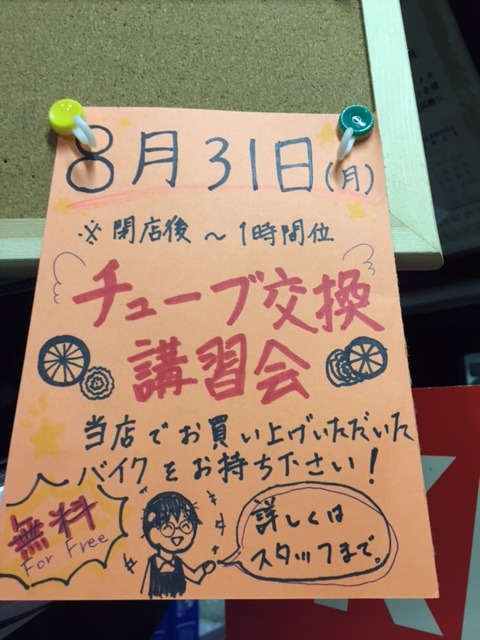 8月31日(月)
※閉店後～1時間位
チューブ交換
講習会
当店でお買い上げいただいた
バイクをお持ち下さい!
無料
For Free
詳しくは
スタッフまで。